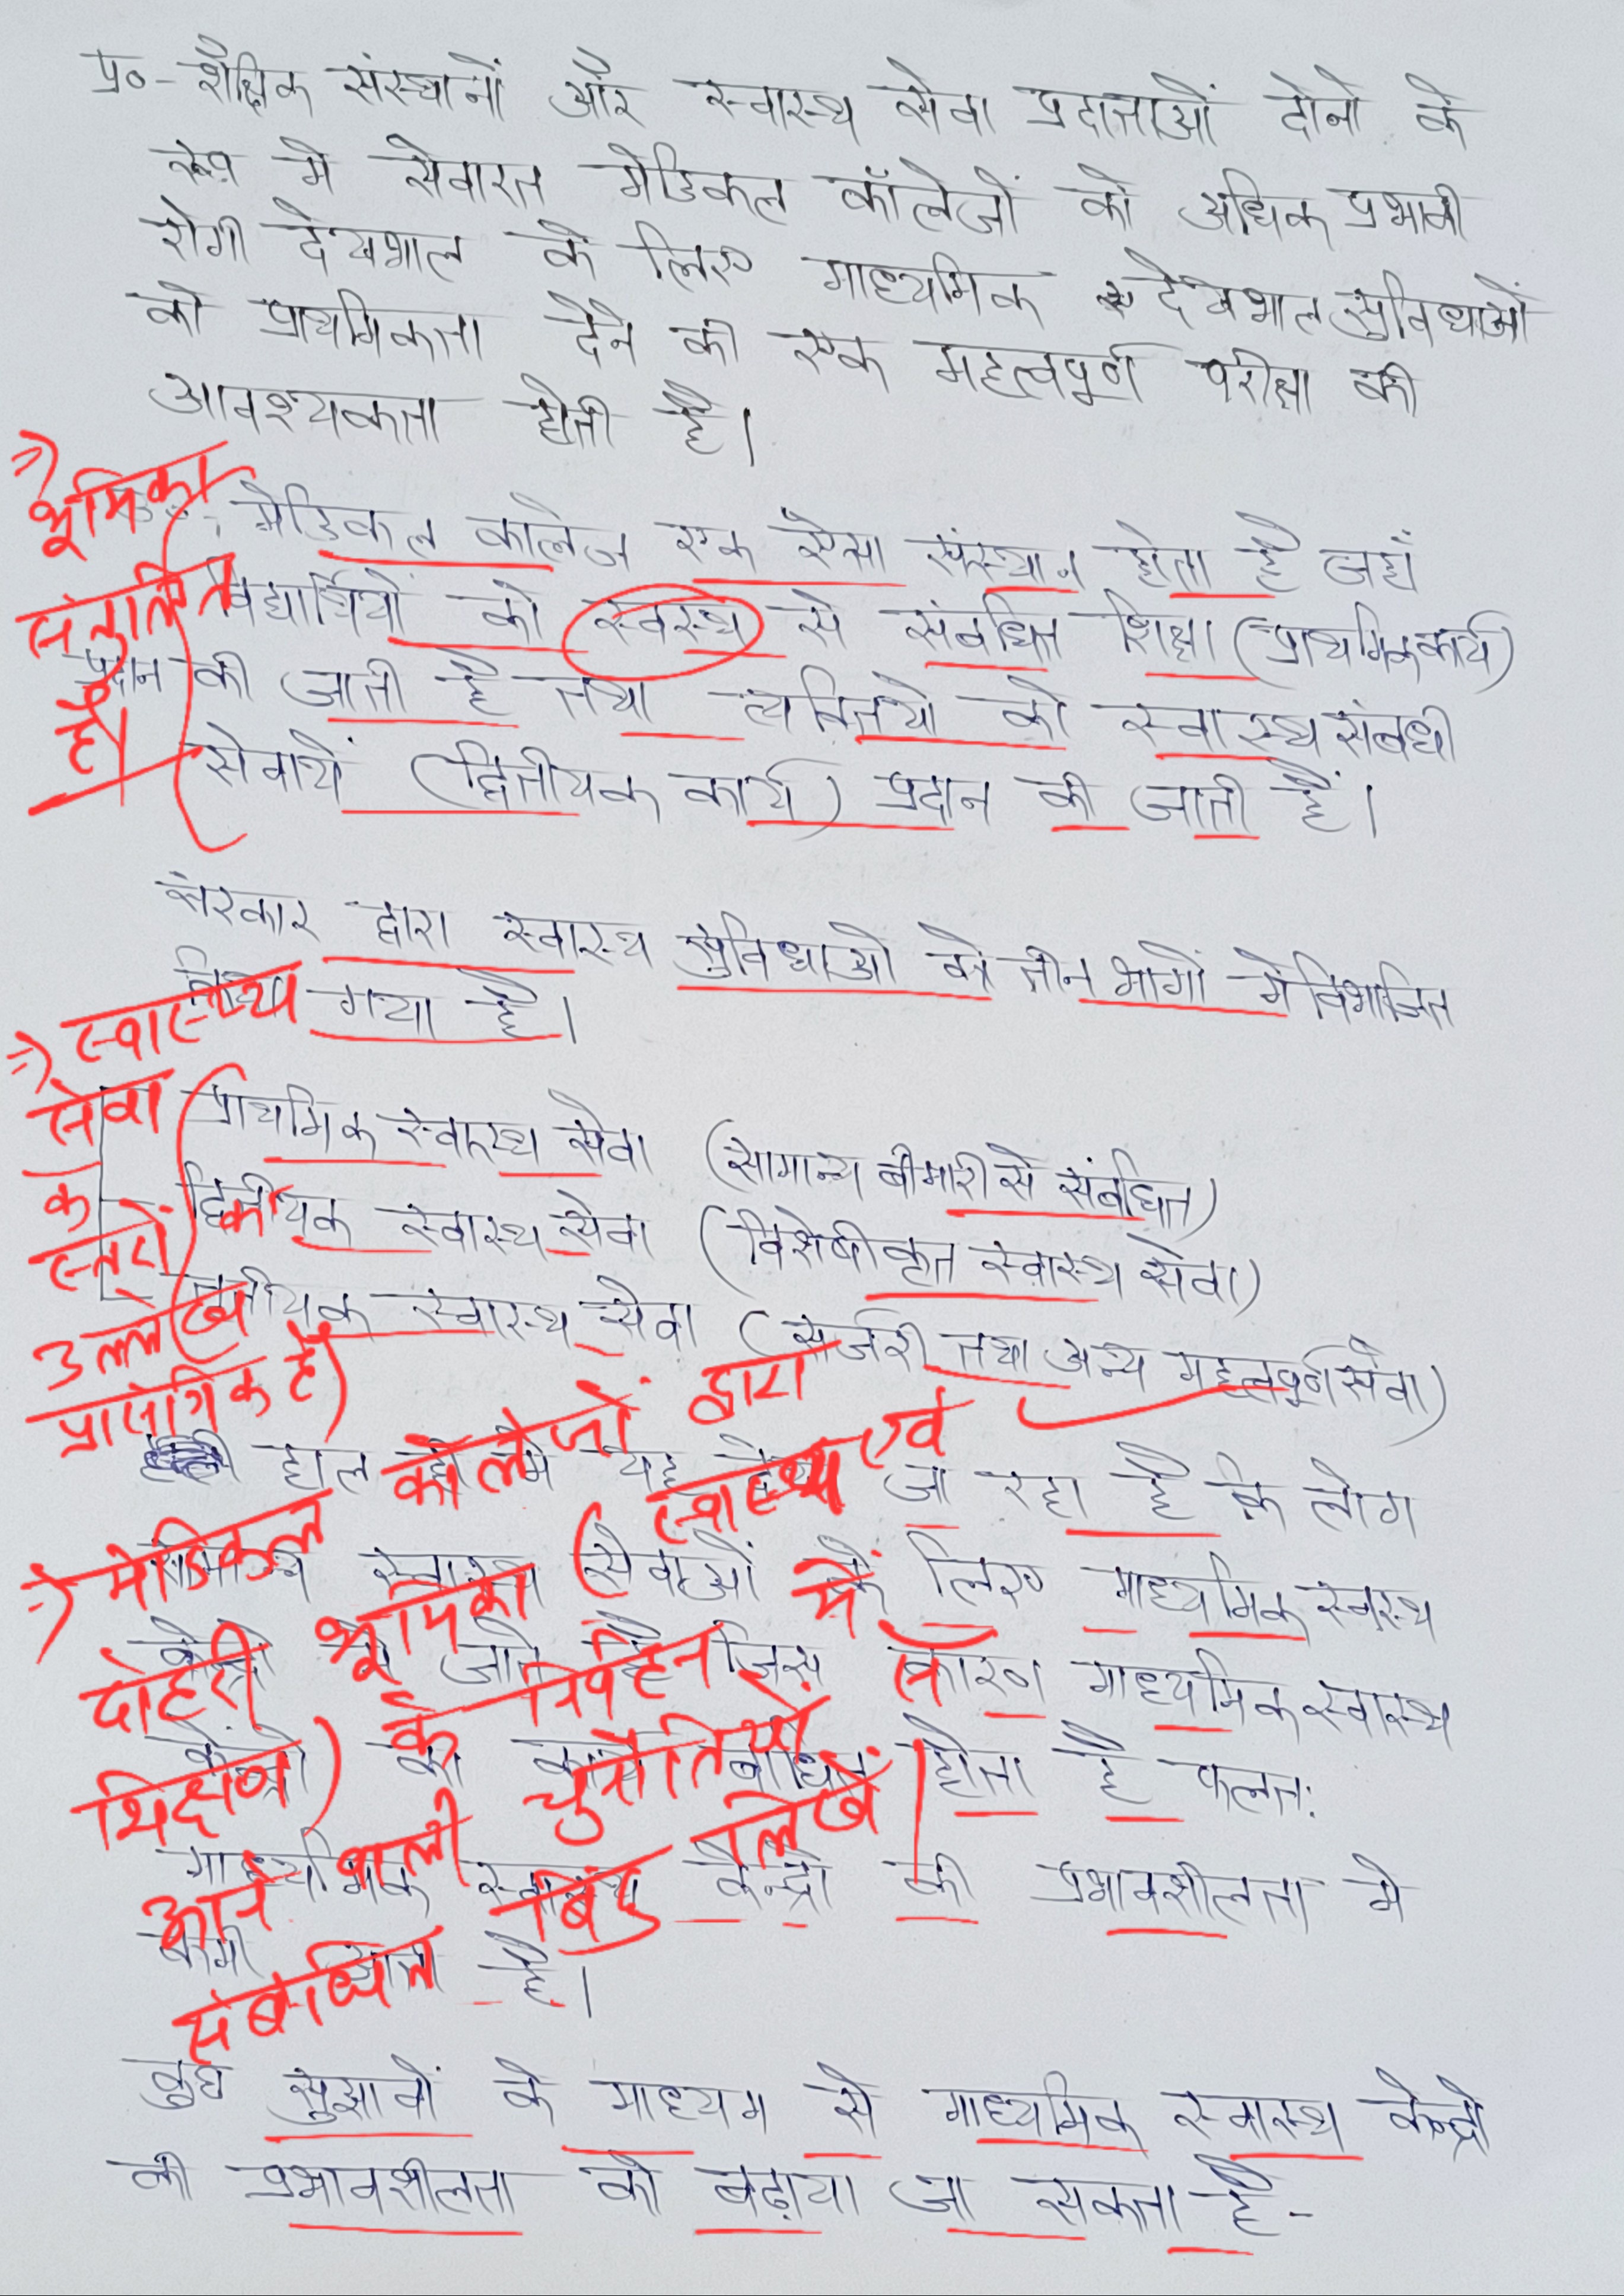 प्र०- शैक्षिक संस्थानों और स्वास्थ सेवा प्रदाताओं दोनो के
रूप मे सेवारत मेडिकल कॉलेजों को अधिक प्रभावी
रोगी देखभाल के लिए माध्यमिक देखभाल सुविधाओं
को प्राथमिकता देने की एक महत्वपूर्ण परीक्षा की
आवश्यकता होती है।
=> भूमिका
संतुलित
है।
मेडिकल कालेज एक ऐसा संस्थान होता है जहाँ
विद्यार्थियों को स्वस्थ से संबधित शिक्षा (प्राथमिक कार्य)
प्रदान की जाती है तथा व्यक्तियो को स्वास्थ संबधी
सेवायें (द्वितीयक कार्य) प्रदान की जाती हैं।
सरकार द्वारा स्वास्थ सुविधाओ को तीन भागों मे विभाजित
किया गया है।
=> स्वास्थ्य
सेवा
के
स्तरों का
उल्लेख
प्रासंगिक है।
प्राथमिक स्वास्थ सेवा (सामान्य बीमारी से संबधित)
द्वितीयक स्वास्थ सेवा (विशेषीकृत स्वास्थ सेवा)
तृतीयक स्वास्थ सेवा (सर्जरी तथा अन्य महत्वपूर्ण सेवा)
हाल ही मे यह देखा जा रहा है कि लोग
सामान्य स्वास्थ सेवाओं के लिए माध्यमिक स्वास्थ
केन्द्रो मे जाते है जिस कारण माध्यमिक स्वास्थ
केन्द्रो का कार्य बाधित होता है फलतः
माध्यमिक स्वास्थ्य केन्द्रो की प्रभावशीलता मे
कमी आती है।
=> मेडिकल कॉलेजों द्वारा
दोहरी भूमिका (स्वास्थ्य एवं
शिक्षण) के निर्वहन में
आने वाली चुनौतियों
संबंधित बिंदु लिखें।
कुछ सुझावों के माध्यम से माध्यमिक स्वास्थ केन्द्रो
की प्रभावशीलता को बढ़ाया जा सकता है-